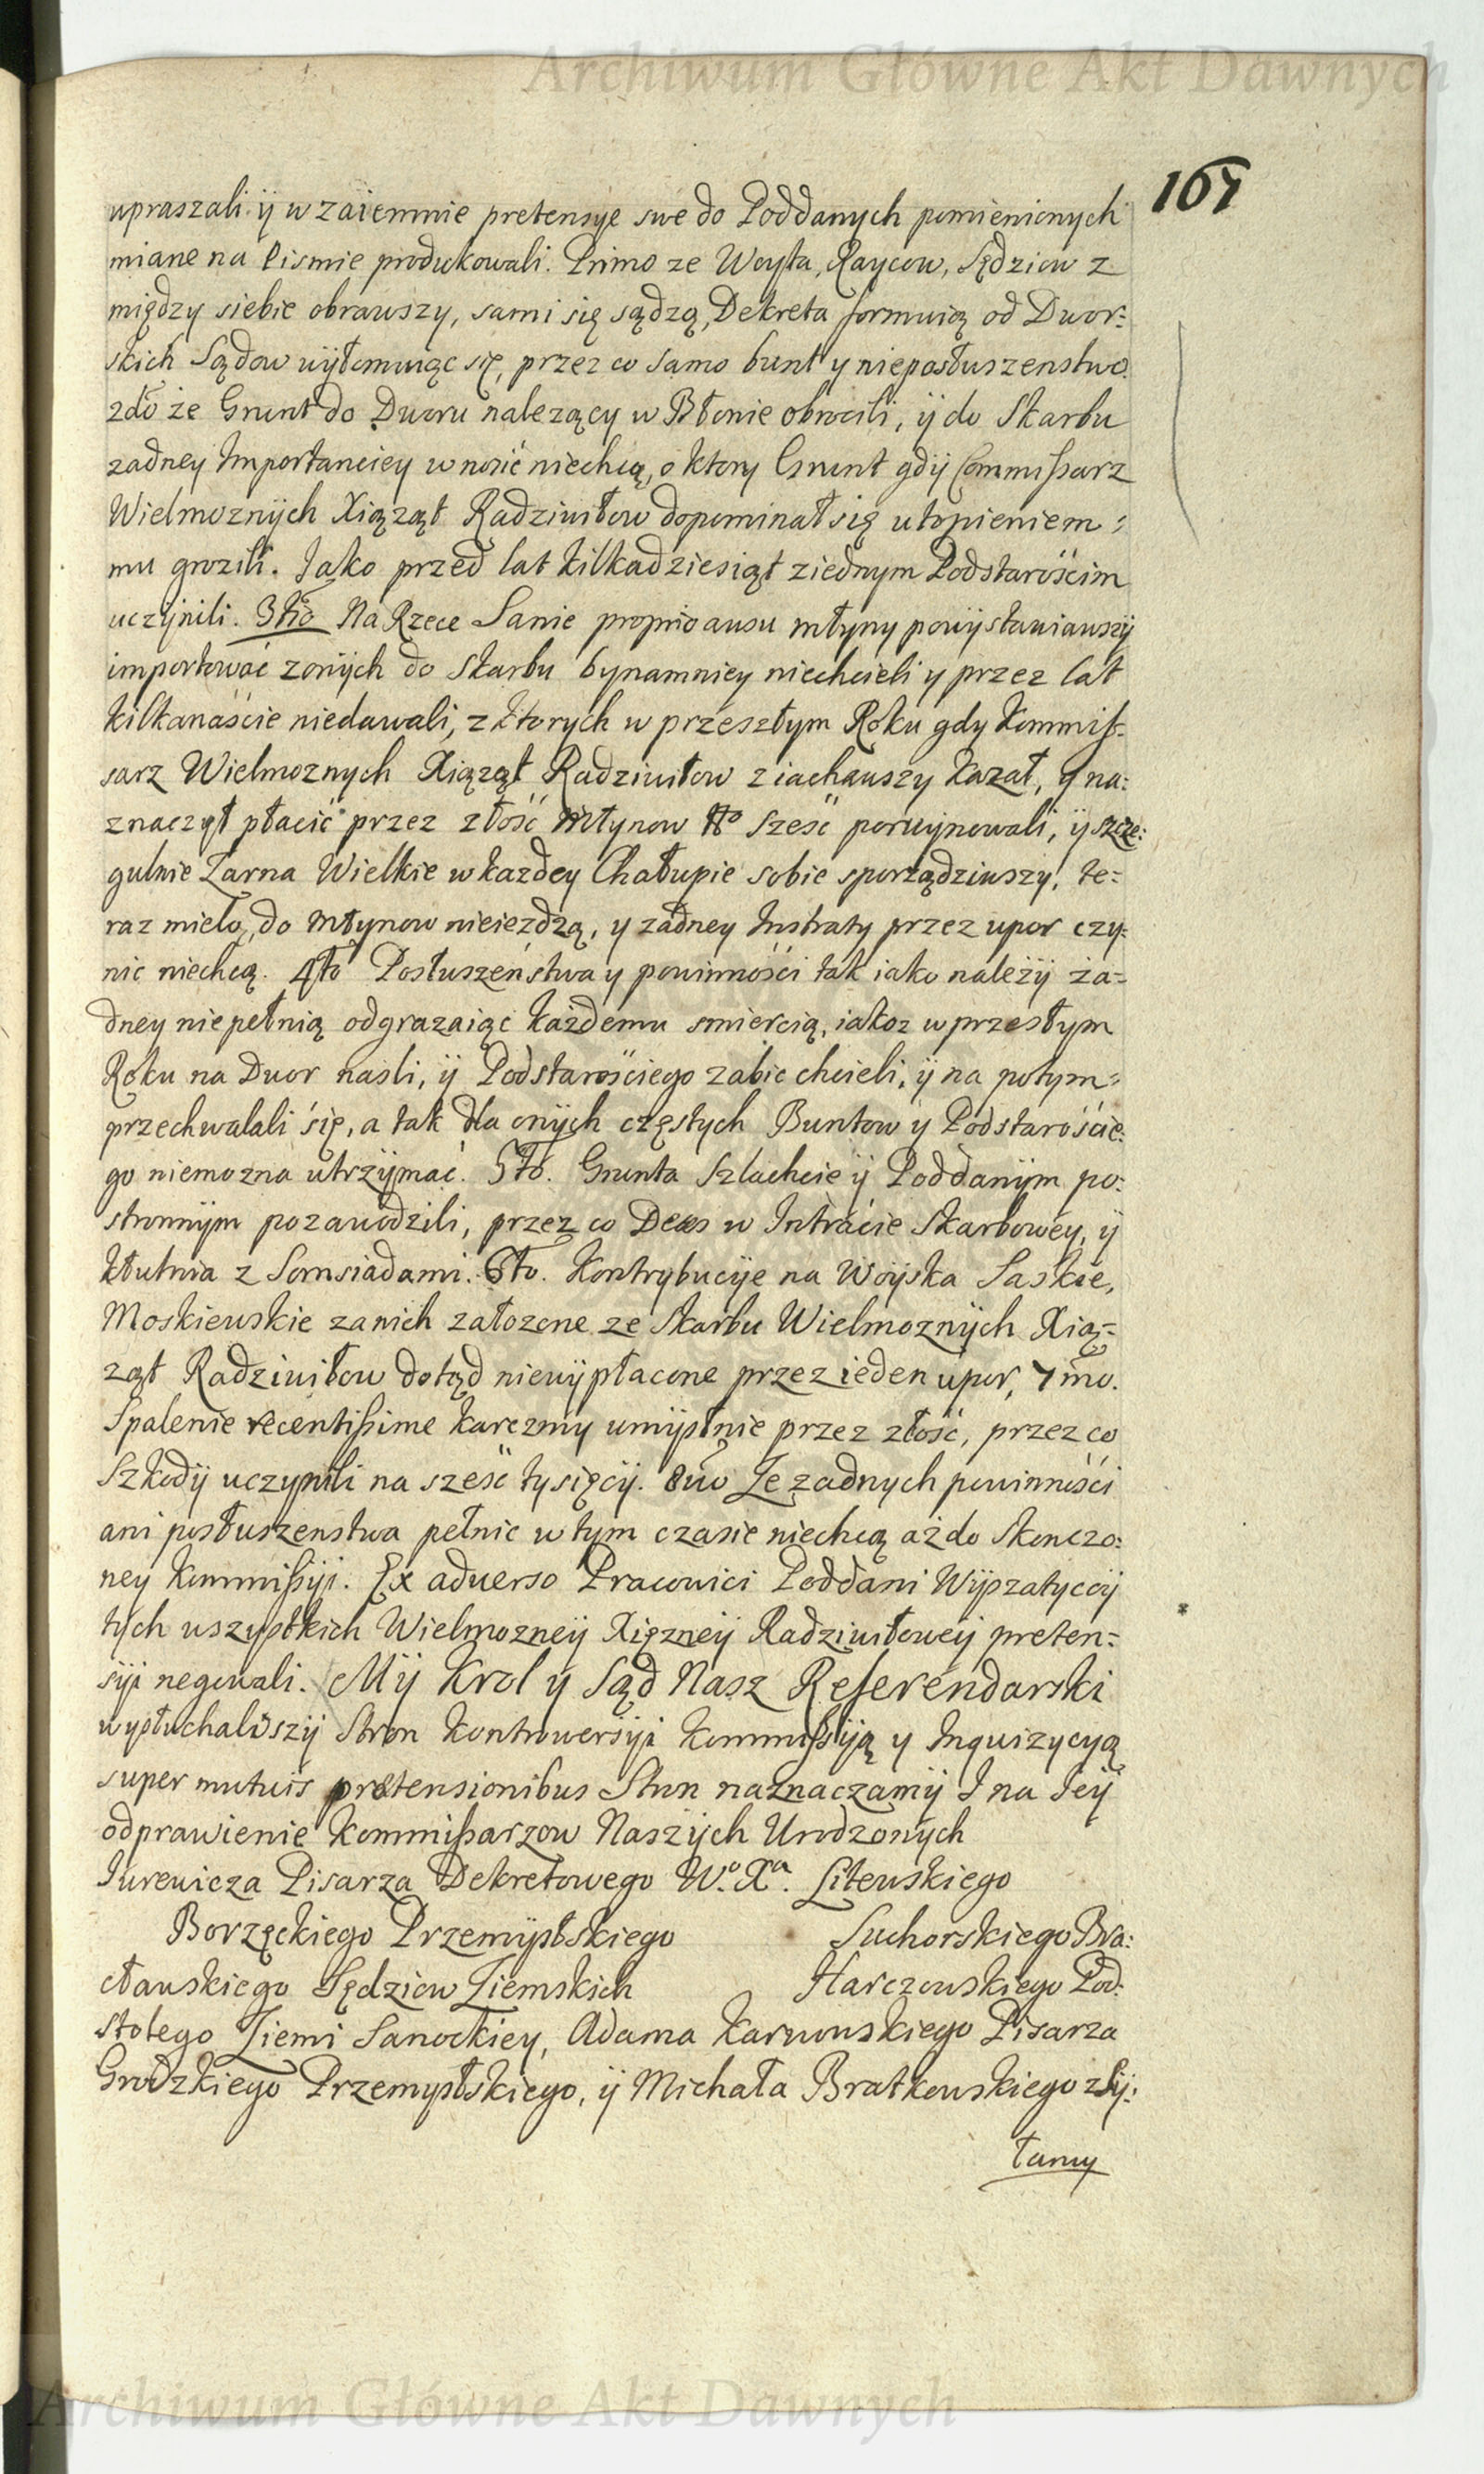 Archiwum Główne Akt Dawnych
167
upraszali ÿ wzaiemnie pretensye swe do Poddanych pomienionych
miane na Pismie produkowali. Primo ze Woyta, Raycow, Sędziow z
między siebie obrawszy, sami się sądzą, Dekreta formuią od Dwor:
skich Sądow wÿłomuiąc się, przez co samo bunt y nieposłuszenstwo.
2do że Grunt do Dworu nalezący w Błonie obrocili, ÿ do Skarbu
zadney Importanciey wnosić niechcą, o ktory Grunt gdÿ Commißarz
Wielmoznÿch Xiąząt Radziwiłow dopominał się utopieniem :
mu grozili. Jako przed lat kilkadziesiąt ziednym Podstarościm
uczÿnili. 3tio Na Rzece Sanie proprio ausu młyny powÿstawiawszÿ
importować zonÿch do Skarbu bynamniey niechcieli y przez lat
kilkanaście niedawali, z ktorych w przeszłym Roku gdy Kommiß:
sarz Wielmoznych Xiąząt Radziwiłow ziachawszy kazał, y na:
znaczył płacić przez złość Młynow No sześć porujnowali, ÿ szcze:
gulnie Zarna Wielkie w kazdey Chałupie sobie sporządziwszy, te=
raz mielą, do Młynow nieiezdzą, y zadney Instraty przez upor czy:
nic niechcą. 4to Posłuszeństwa y powinności tak iako należÿ ża=
dney niepełnią odgrazaiąc każdemu smiercią, iakoz w przesłym
Roku na Dwor naśli, ÿ Podstarościego zabic chcieli, ÿ na potym:
przechwalali się, a tak dla onÿch częstych Buntow y Podstaroście:
go niemozna utrzÿmać. 5to. Grunta Szlachcie ÿ Poddanÿm po:
stronnÿm pozawodzili, przez co Deces w Intracie Skarbowey, ÿ
kłutnia z Somsiadami. 6to. Kontrybucÿe na Woÿska Saskie,
Moskiewskie zanich załozone ze Skarbu Wielmoznÿch Xią=
ząt Radziwiłow dotąd niewÿpłacone przez ieden upor, 7mo.
Spalenie recentißime karczmy umÿslnie przez złość, przez co
Szkodÿ uczynili na sześć tysięcÿ. 8vo Ze zadnych powinności
ani posłuszenstwa pełnic w tym czasie niechcą aż do skonczo:
ney Kommißÿi. Ex adverso Pracowici Poddani Wÿpzatyccÿ
tÿch wszystkich Wielmozneÿ Xięzneÿ Radziwiłoweÿ preten=
sÿi negowali. Mÿ Krol y Sąd Nasz Referendarski
wysłuchalÿszÿ Stron kontrowersÿi Kommißÿią y Inquizycyą
super mutuis prætensionibus Stron naznaczamÿ I na Ieÿ
odprawienie Kommißarzow Naszÿch Urodzonÿch
Jurewicza Pisarza Dekretowego W.o Xa. Litewskiego
Borzęckiego Przemÿslskiego Suchorskiego Bra:
cławskiego Sędziow Ziemskich Harczewskiego Pod:
stolego Ziemi Sanockiey, Adama Karwowskiego Pisarza
Grodzkiego Przemyslskiego, ÿ Michała Bratkowskiego zsÿ:
łamy
Archiwum Główne Akt Dawnych